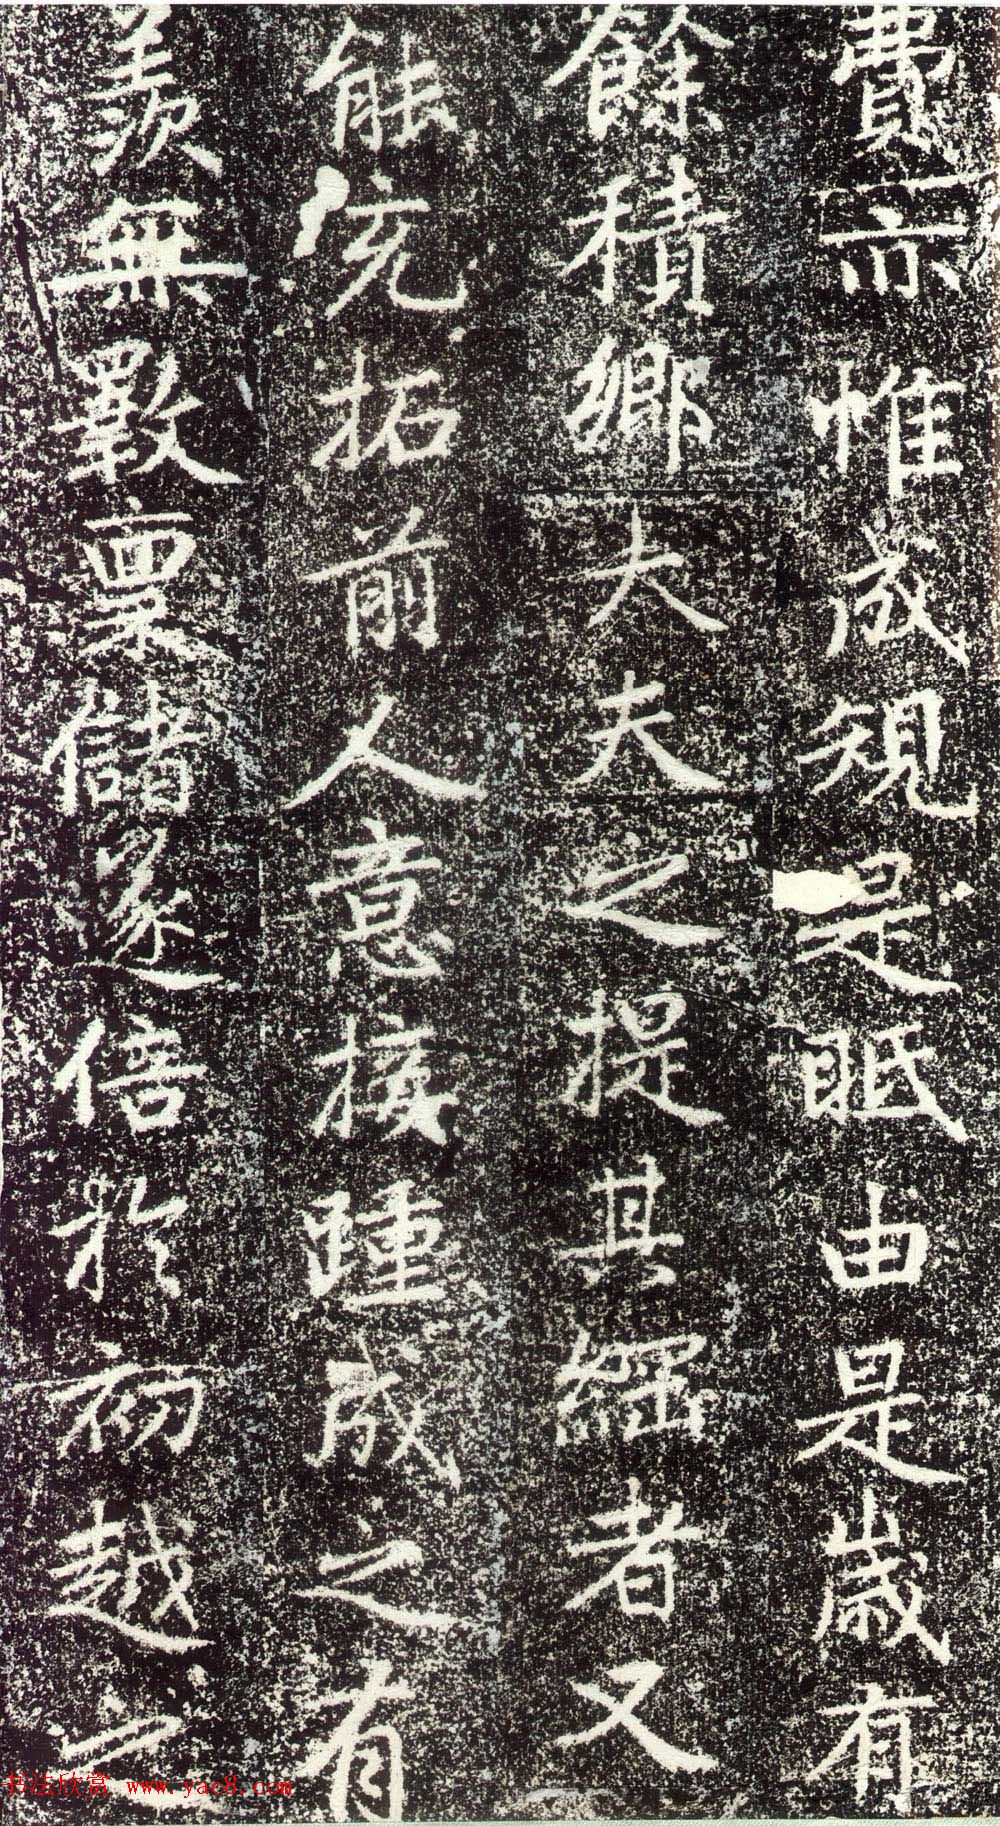 費亦惟成規是眂由是歲有
餘積鄉大夫之提其綱者又
能充拓前人意接踵成之有
羨無斁稟儲遂倍於初越二
书法欣赏 www.yac8.com